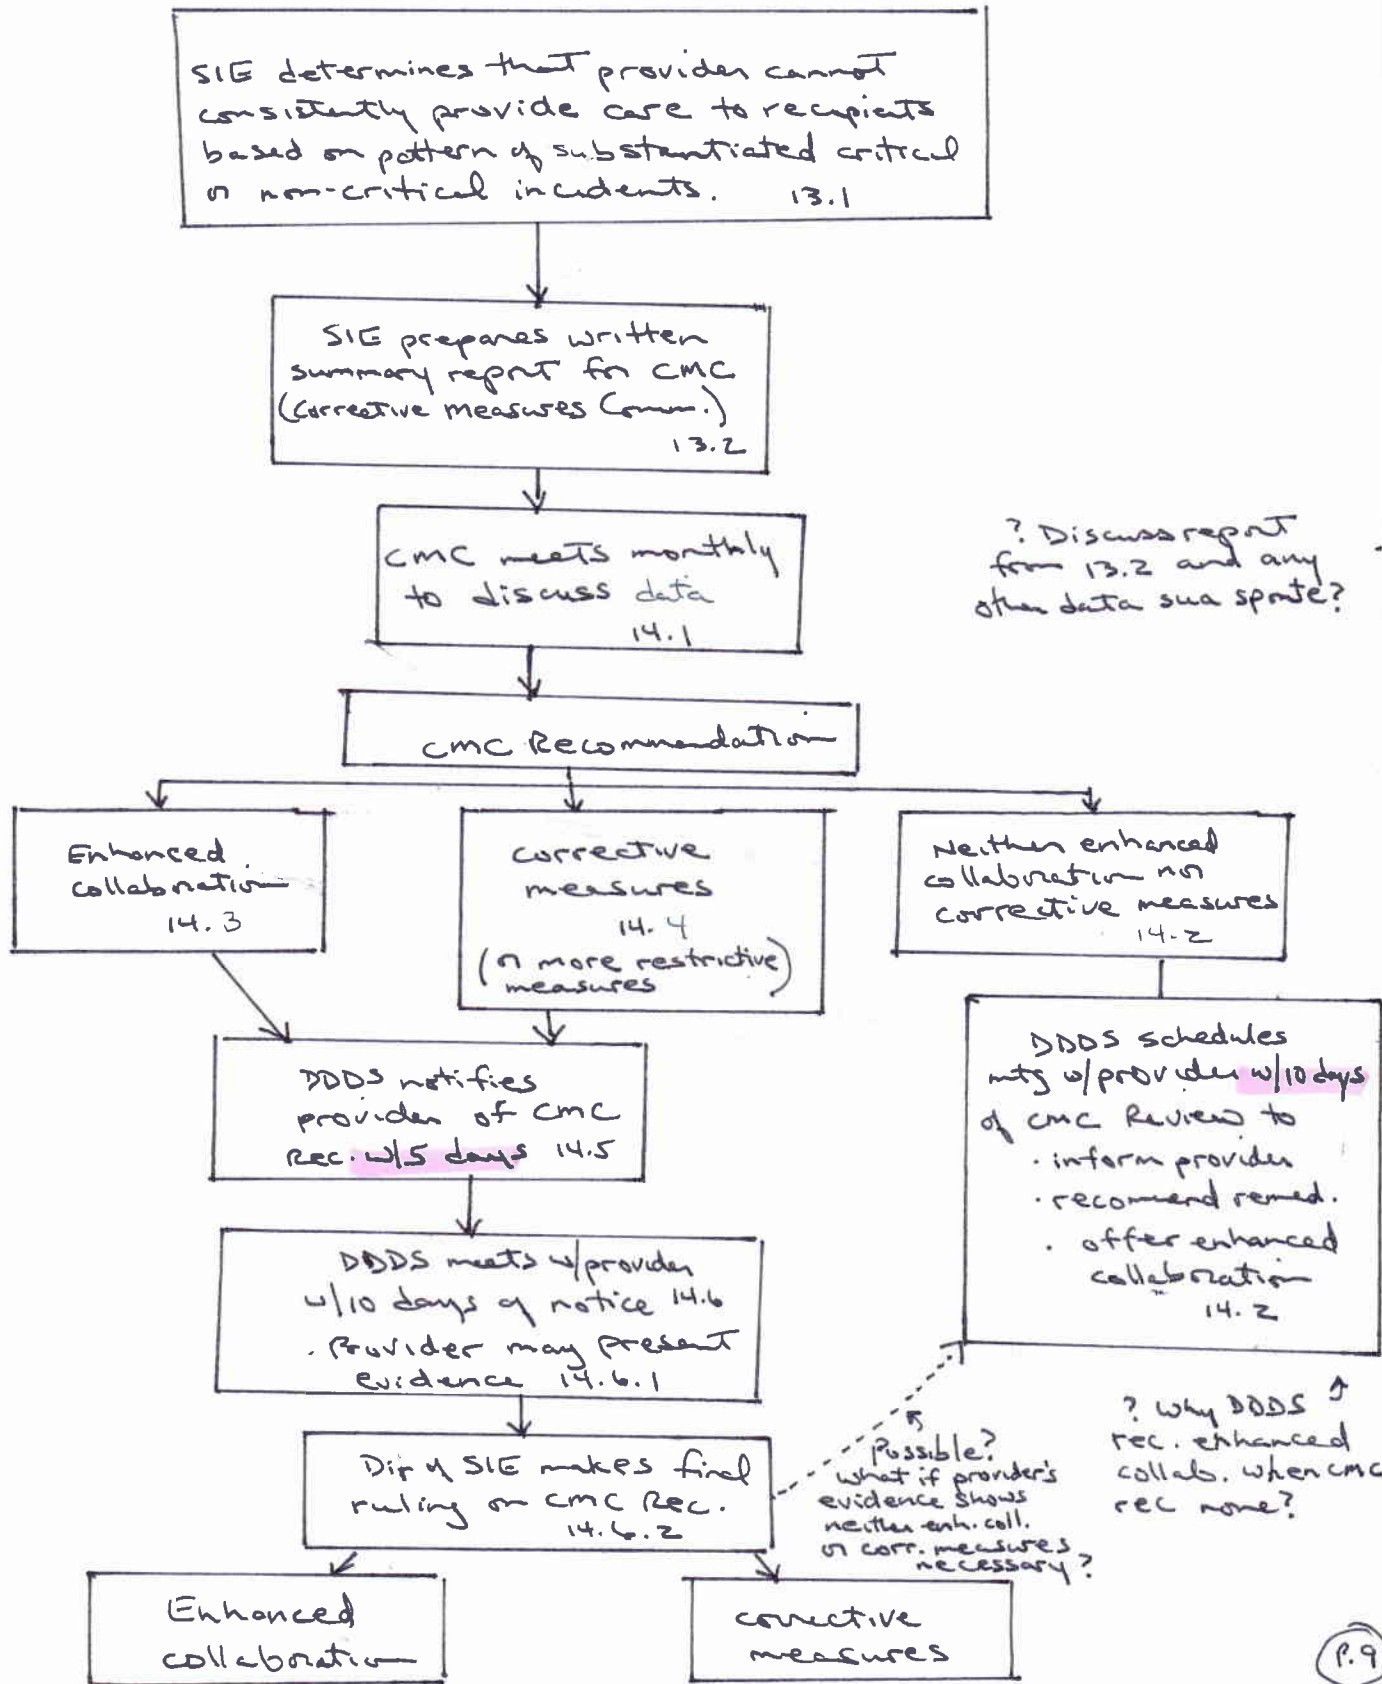 SIE determines that provider cannot
consistently provide care to recipients
based on pattern of substantiated critical
or non-critical incidents. 13.1
SIE prepares written
summary report for CMC
(Corrective Measures Comm.)
13.2
CMC meets monthly
to discuss data
14.1
? Discuss report
from 13.2 and any
other data sua sponte?
CMC Recommendation
Enhanced
collaboration
14.3
corrective
measures
14.4
(or more restrictive)
measures
Neither enhanced
collaboration nor
corrective measures
14.2
DDDS notifies
provider of CMC
Rec. w/5 days 14.5
DDDS schedules
mtg w/provider w/10 days
of CMC Review to
· inform provider
· recommend remed.
· offer enhanced
collaboration
14.2
DDDS meets w/provider
w/10 days of notice 14.6
· Provider may present
evidence 14.6.1
Dir of SIE makes final
ruling on CMC Rec.
14.6.2
Possible?
what if provider's
evidence shows
neither enh. coll.
or corr. measures
necessary?
? Why DDDS
rec. enhanced
collab. when CMC
rec none?
Enhanced
collaboration
corrective
measures
P.9